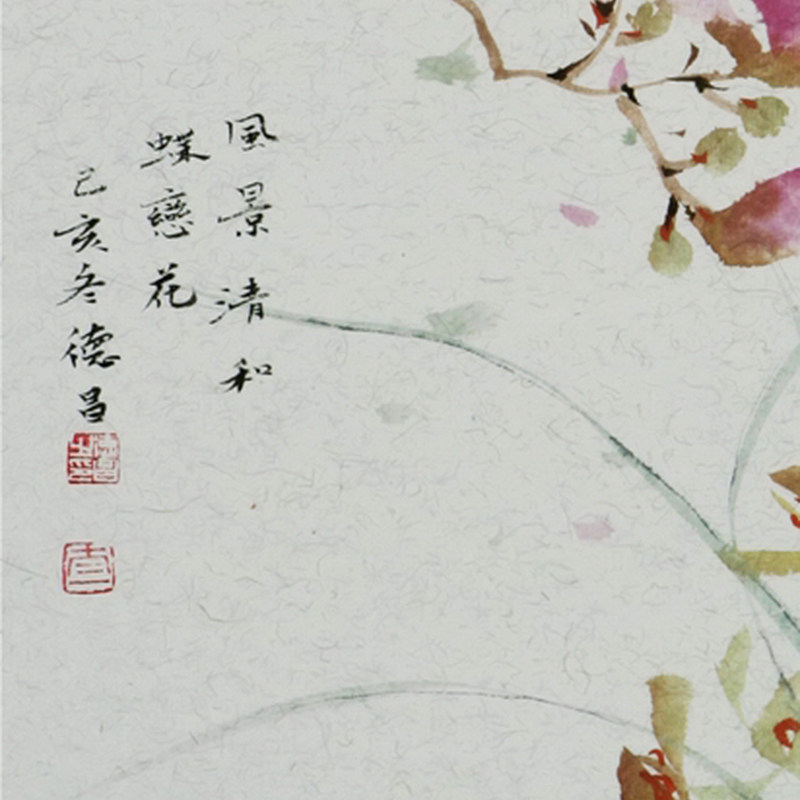 風景清和
蝶戀花
己亥冬德昌